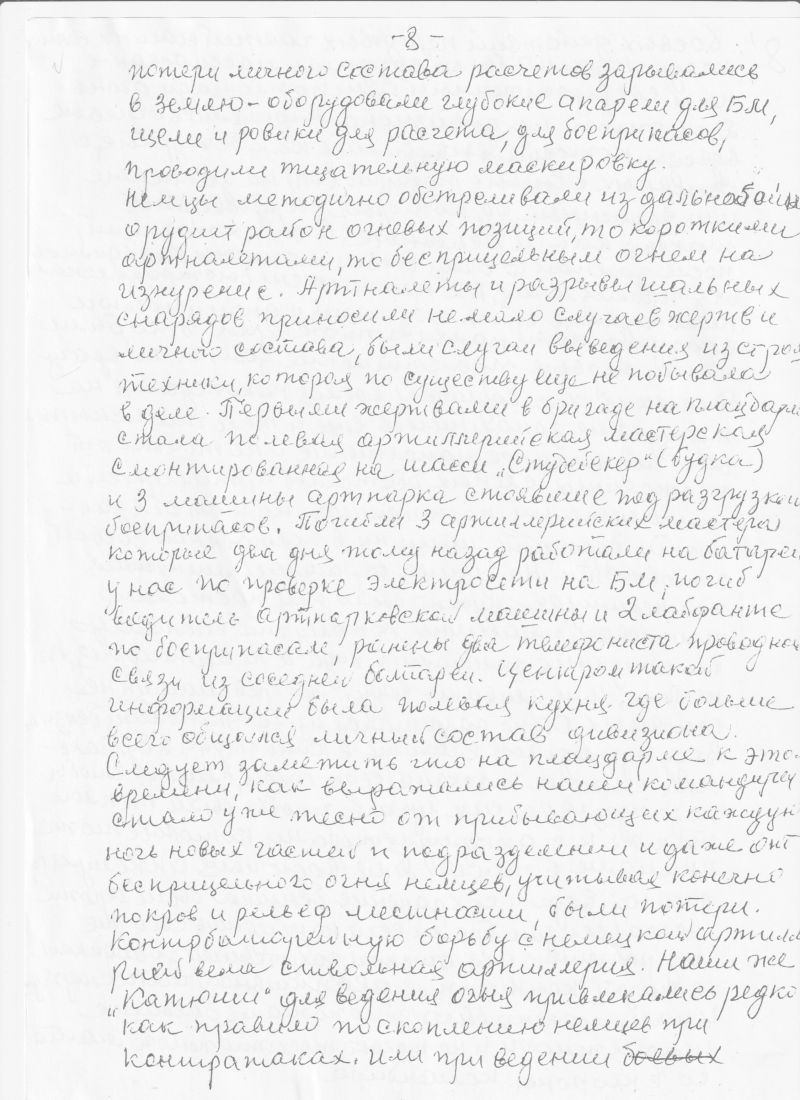 -8-
потери личного состава расчетов зарывались
в землю - оборудовали глубокие апарели для БМ,
щели и ровики для расчета, для боеприпасов,
проводили тщательную маскировку.
Немцы методично обстреливали из дальнобойн
орудий район огневых позиций, то короткими
артналетами, то бесприцельным огнем на
изнурение. Артналеты и разрывы шальных
снарядов приносили немало случаев жертв и
личного состава, были случаи выведения из строя
техники, которая по существу еще не побывала
в деле. Первыми жертвами в бригаде на плацдарме
стала полевая артиллерийская мастерская
смонтированная на шасси „Студебекер" (будка)
и 3 машины артпарка стоявшие под разгрузкой
боеприпасов. Погибли 3 артиллерийских мастера
которые два дня тому назад работали на батарее
у нас по проверке электросети на БМ, погиб
водитель артпарковской машины и 2 лаборанта
по боеприпасам, ранены два телефониста проводной
связи из соседней батареи. Центром такой
информации была полевая кухня где больше
всего общался личный состав дивизиона.
Следует заметить что на плацдарме к этом
времени, как выражались наши командиры
стало уже тесно от прибывающих каждую
ночь новых частей и подразделений и даже от
бесприцельного огня немцев, учитывая конечно
покров и рельеф местности, были потери.
Контрбатарейную борьбу с немецкой артилле
рией вела ствольная артиллерия. Наши же
„Катюши" для ведения огня привлекались редко
как правило по скоплению немцев при
контратаках. Или при ведении боевых